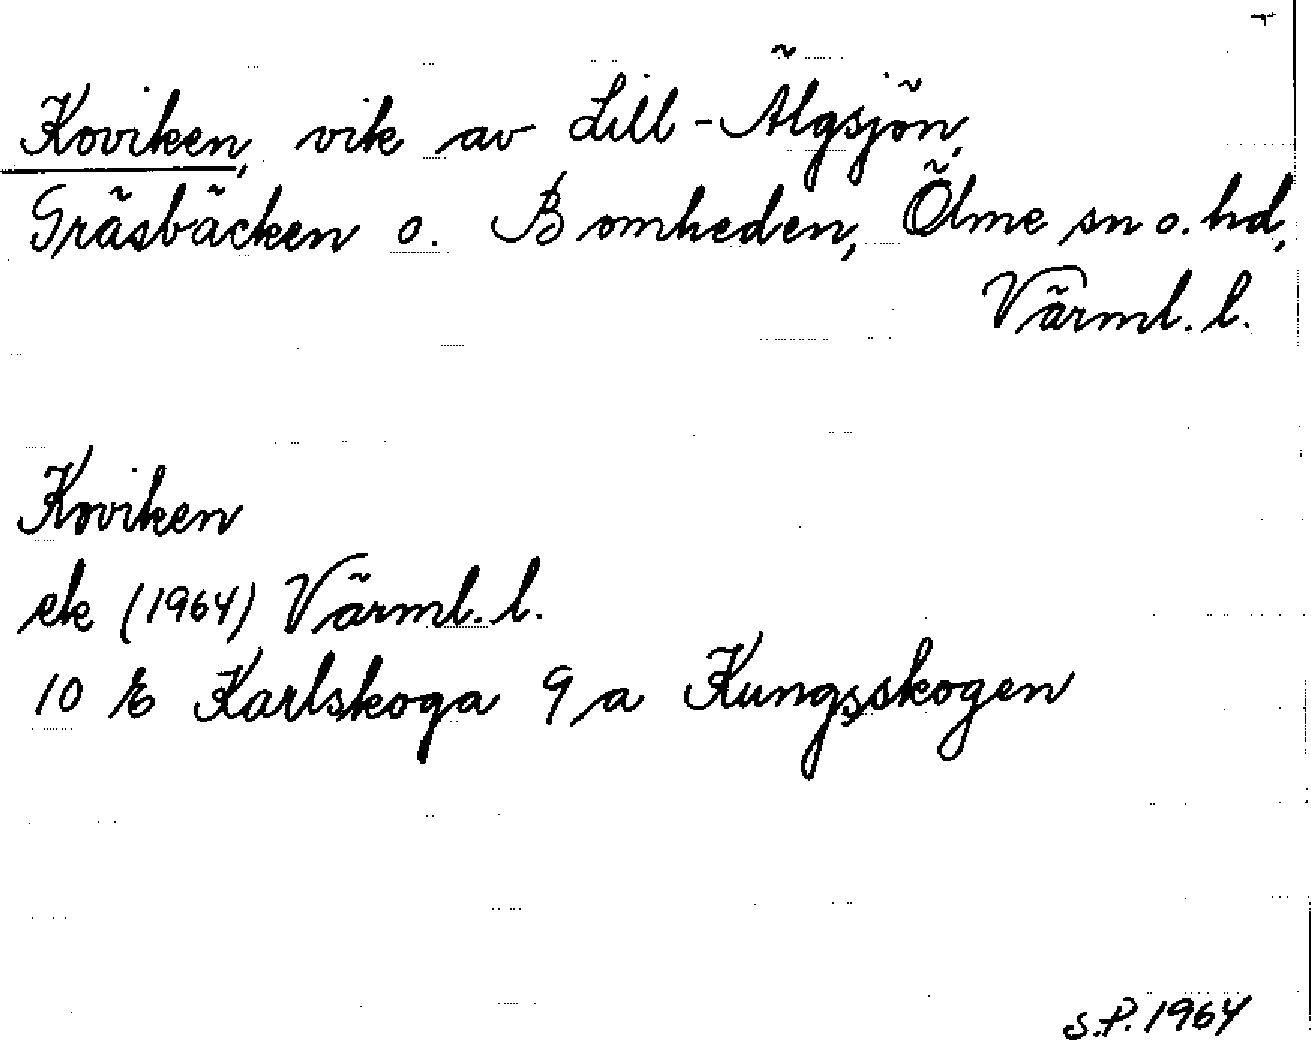 Koviken, vik av Lill-Älgsjön,
Gräsbäcken o. Bomheden, Ölme sn o. hd,
Värml. l.
Koviken
ek (1964) Värml. l.
10 E Karlskoga 9 a Kungsskogen
S.P. 1964